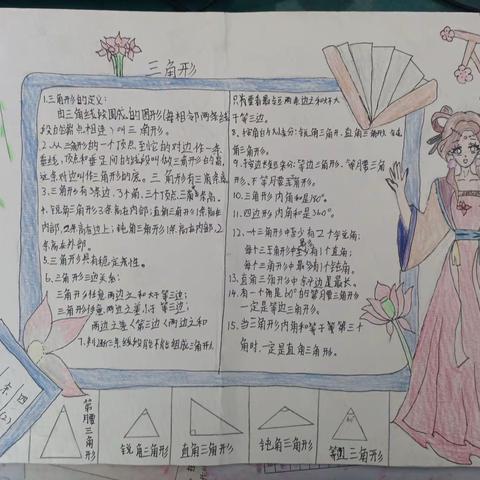 三角形
1.三角形的定义:
由三条线段围成的图形(每相邻两条线
段的端点相连)叫三角形。
2.从三角形的一个顶点到它的对边作一条
垂线,顶点和垂足间的线段叫做三角形的高,
这条对边叫作三角形的底。三角形有三条高
3.三角形有3条边,3个角,三个顶点,三条高。
4.锐角三角形3条高在内部;直角三角形1条高在
内部,2条高在边上;钝角三角形1条高在内部,2
条高在外部。
5.三角形具有稳定性。
6.三角形三边关系:
三角形任意两边之和大于第三边;
三角形任意两边之差小于第三边;
两边之差<第三边<两边之和
7.判断三条线段能不能组成三角形,
只要看最短的两条边之和大不大
于第三边。
8.按角的大小分:锐角三角形、直角三角形、钝
角三角形。
9.按边长短分:等边三角形、等腰三角
形、不等腰三角形。
10.三角形内角和是180°。
11.四边形内角和是360°。
12.一个三角形中至少有2个锐角;
每个三角形中最多有1个直角;
每个三角形中最多有1个钝角。
13.直角三角形中斜边最长。
14.有一个角是60°的等腰三角形
一定是等边三角形。
15.当二角形内角和等于第三个
角时,一定是直角三角形。
等腰三角形
锐角三角形
直角三角形
钝角三角形
等边三角形
60°
四
(2)